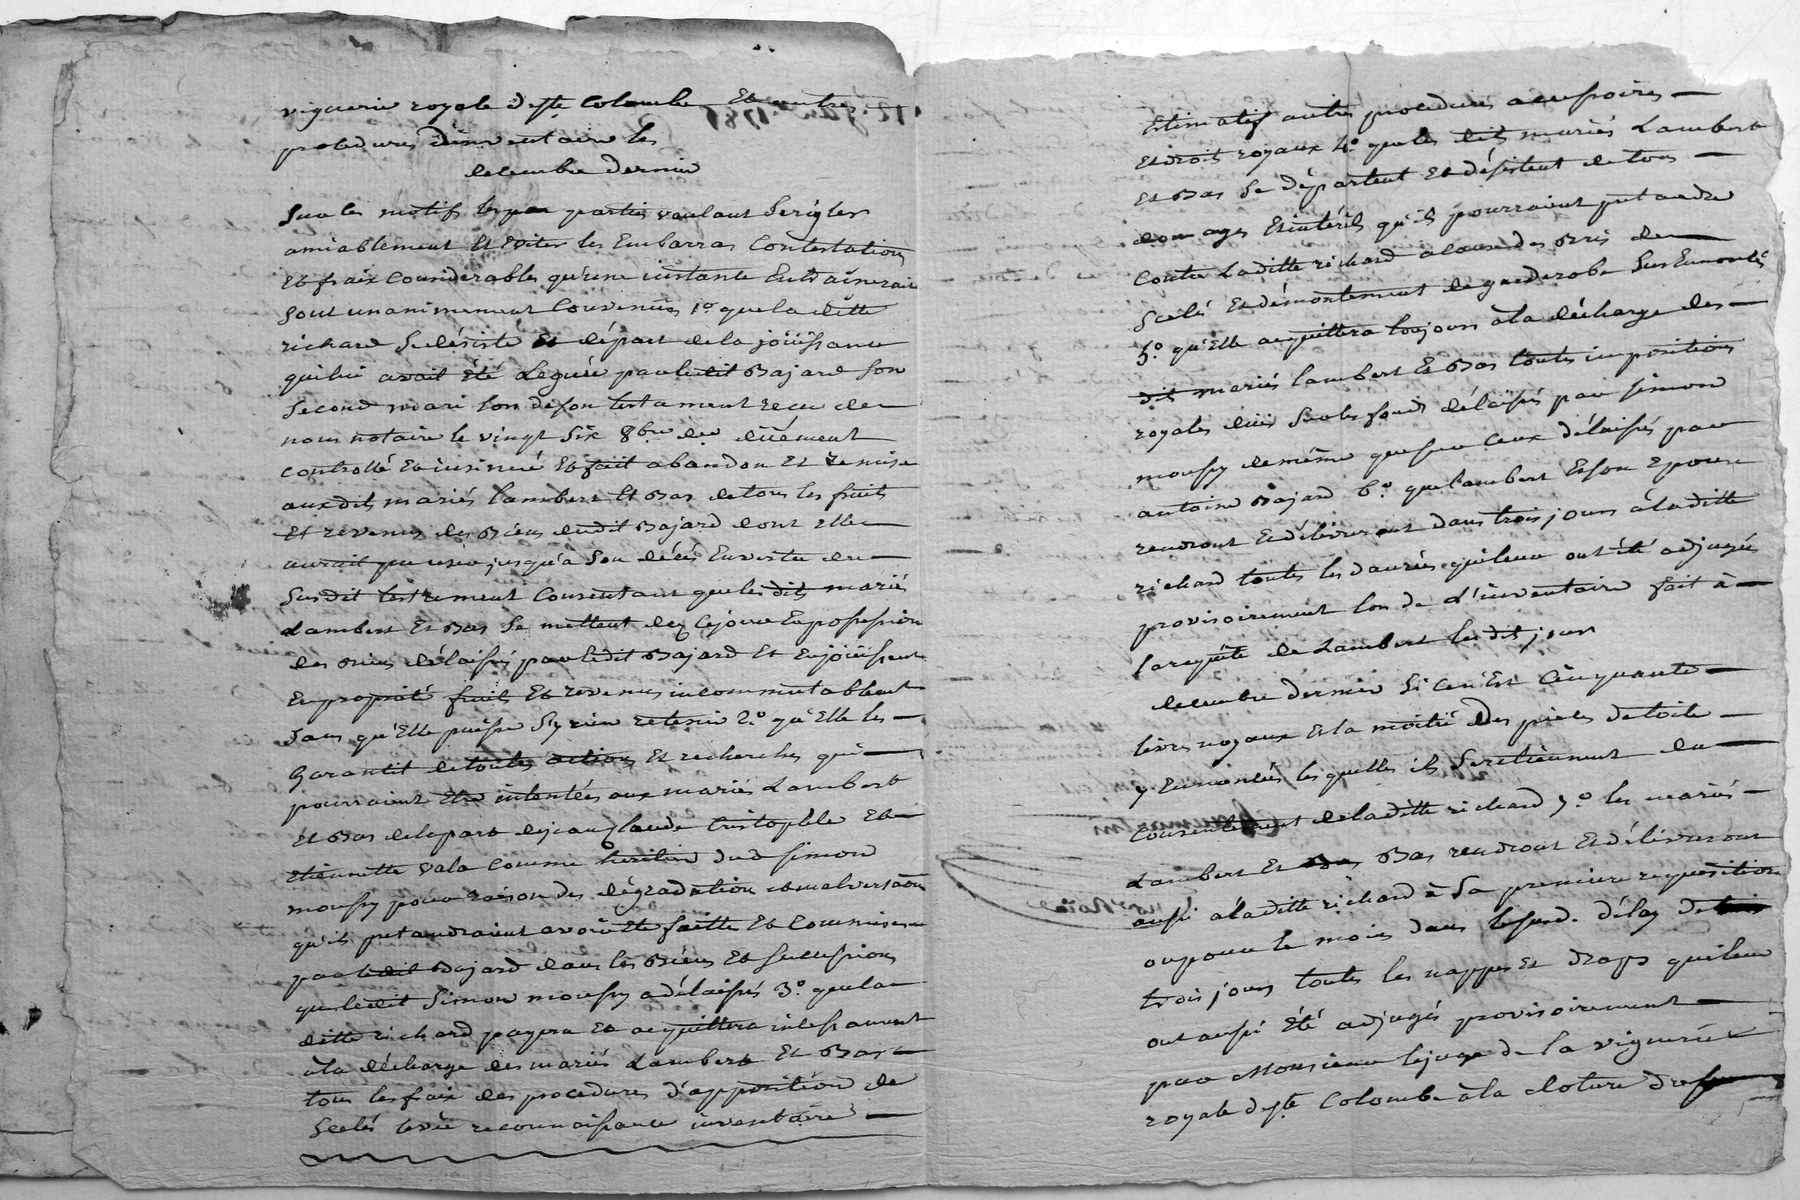 viguerie royale de ste Colombe Et autres
procedures d'inventaire les
decembre dernier
Sur les motifs les parties voulant Se rigler
amiablement Et Eviter les Embarras Contestations
Et fraix Considerables qu'une instante Entrainerait
Sont unanimement Convenues 1º que la ditte
richard Se désiste Et départ de la joüissance
qui lui avait été Leguée par ledit Bajard Son
Second mari lors de son testament reçu de
nous notaire le vingt Six 8bre der düement
Controllé Et insinué Et fait abandon Et remise
auxdits mariés Lambert Et Bas de tous les fruits
Et revenus des Biens dudit Bajard dont Elle
aurait pu user jusqu'a Son décés En vertu du
Susdit testament Consentant que les dits mariés
Lambert Et Bas Se mettent dez Cejour En possession
des Biens délaissés par ledit Bajard Et En joüissent
En propriété fruits Et revenus incommutablement
Sans qu'Elle puisse Sy rien retenir 2º qu'Elle les
Garantit de toutes actions Et recherches qui
pourraient Etre intentées aux mariés Lambert
Et Bas de la part de jean glaude Cristophle Et
Etiennette vala Comme heritiers dud Simon
moussy pour raison des dégradations et malversations
qu'ils pretandraient avoir Ete faitte Et Commises
par ledit Bajard dans les Biens Et Successions
que ledit Simon moussy a délaissés 3º que la
ditte richard payera Et acquittera incessament
à la décharge des mariés Lambert Et Bas
tous les fraix des procedures d'apposition de
Scelés levée reconnaissance inventaire
Estimatif autres procedures accessoires
Et droits royaux 4º que les dits mariés Lambert
Et Bas Se départent Et désistent de tous
domages Et intérêts qu'ils pourraient pretandre
Contre Laditte richard a cause des Bris de
Scelés Et démontement de garderobe Sus Enoncés
5º qu'Elle acquittera toujours à la décharge des
dits mariés Lambert Et Bas toutes impositions
royales dües Sur les fonds délaissés par Simon
moussy de même que Sur Ceux délaissés par
antoine Bajard 6º que Lambert Et Son Epouse
rendront Et délivreront dans trois jours à laditte
richard toutes les danrées qui leur ont été adjugées
provisoirement lors de L'inventaire fait à
la requête de Lambert les dits jours
decembre dernier Si Ce n'Est Cinquante
livres noyaux Et la moitié des pieces de toile
y Enoncées lesquelles ils Se retiennent du
Consentement de la ditte richard 7º les mariés
Lambert Et Bas rendront Et délivreront
aussi à laditte richard à Sa premiere requisition
ou pour le moins dans le Susd. délay de
trois jours toutes les nappes Et draps qui leur
ont aussi Été adjugés provisoirement
par Monsieur le juge de la viguerie
royale de ste Colombe à la cloture du